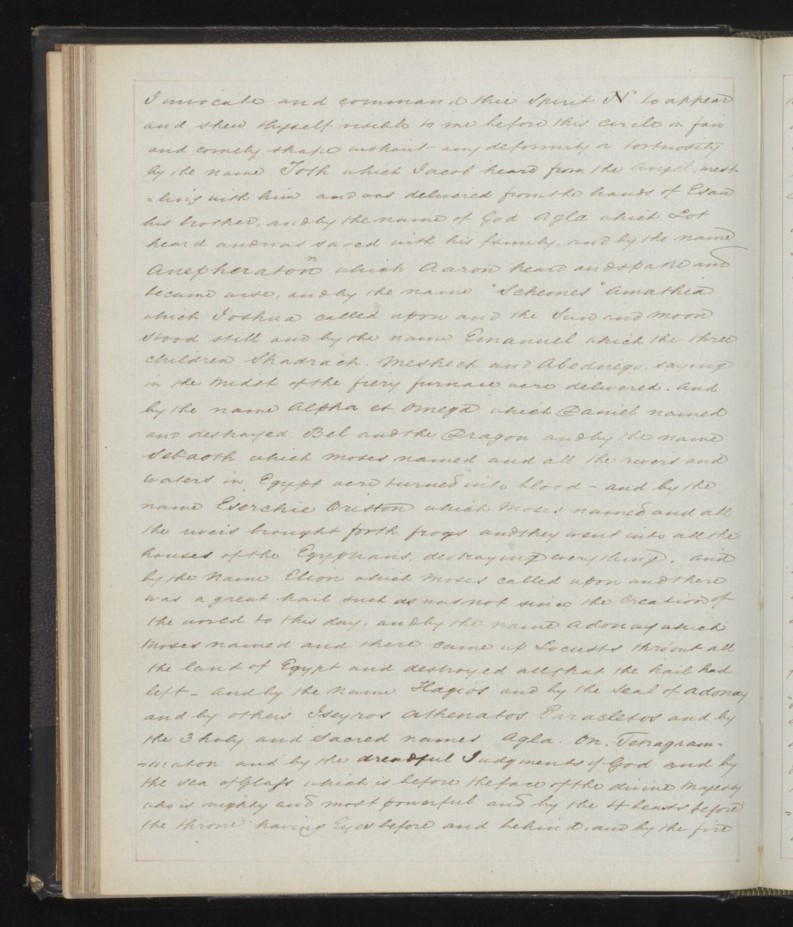 I invocate and command thee Spirit N to appear
and shew thyself visible to me before this circle in fair
and comely shape without any deformity or tortuosity
by the name Toth which Jacob heard from the Angel, wrest
-ling with him and was delivered from the hands of Esau
his brother, and by the name of God Agla which Lot
heard and was saved with his family, and by the name
Anepheraton which Aaron heard and spake and
became wise, and by the name "Schemes" Amathia
which Joshua called upon and the Sun and Moon
stood still and by the name Emanuel which the three
children Shadrach. Meshech and Abednego, saying
in the midst of the fiery furnace were delivered. And
by the name Alpha et Omega which Daniel named
and destroyed Bel and the Dragon and by the name
Sebaoth which Moses named and all the rivers and
waters in Egypt were turned into blood - and by the
name Eserchie Oriston which Moses named and all
the rivers brought forth frogs and they went into all the
houses of the Egyptians, destroying every thing. and
by the Name Elion which Moses called upon and there
was a great hail such as was not since the Creation of
the world to this day, and by the name Adonay which
Moses named and there came up Locusts thro'out all
the land of Egypt and destroyed all that the hail had
left - and by the Name Hagios and by the Seal of Adonay
and by others Iseyros Athenatos Paracletos and by
the 3 holy and Sacred names Agla. On. Tetragram-
-maton and by the dreadful Judgments of God and by
the Sea of Glass which is before the face of the divine Majesty
who is mighty and most powerful and by the 4 beasts before
the throne having Eyes before and behind, and by the fire